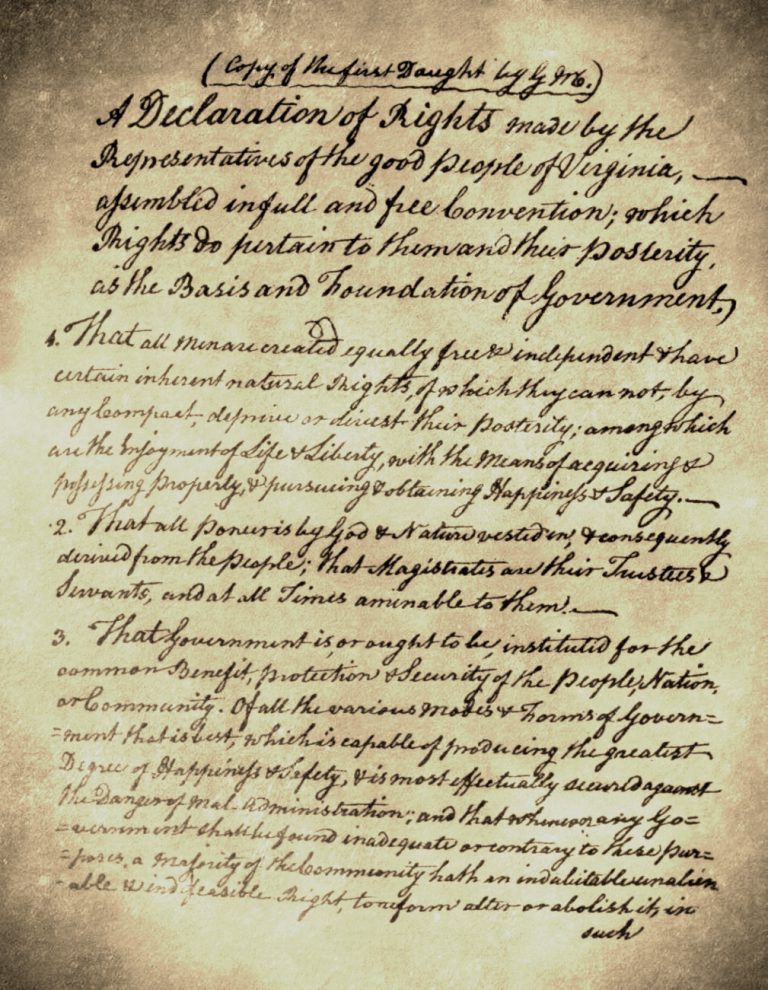 (Copy of the first Daught by G M.)
A Declaration of Rights made by the
Representatives of the good people of Virginia,
assembled in full and free Convention; which
Rights do pertain to them and their posterity,
as the Basis and Foundation of Government,
1. That all Men are created equally free & independent & have
certain inherent natural Rights, of which they can not, by
any Compact, deprive or divest their posterity; among which
are the Enjoyment of Life & Liberty, with the Means of acquiring &
possessing property, & pursueing & obtaining Happiness & Safety.
2. That all power is by God & Nature vested in, & consequently
derived from the People; that Magistrates are their Trustees &
Servants, and at all Times amenable to them.
3. That Government is, or ought to be, instituted for the
common Benefit, protection & Security of the People, Nation,
or Community. Of all the various Modes & Forms of Govern=
=ment that is best, which is capable of producing the greatest
Degree of Happiness & Safety, & is most effectually secured against
the Danger of mal-administration; and that whenever any Go=
=vernment shall be found inadequate or contrary to these pur=
=poses, a Majority of the Community hath an indubitable unalien
=able & indefeasible Right, to reform alter or abolish it, in
such